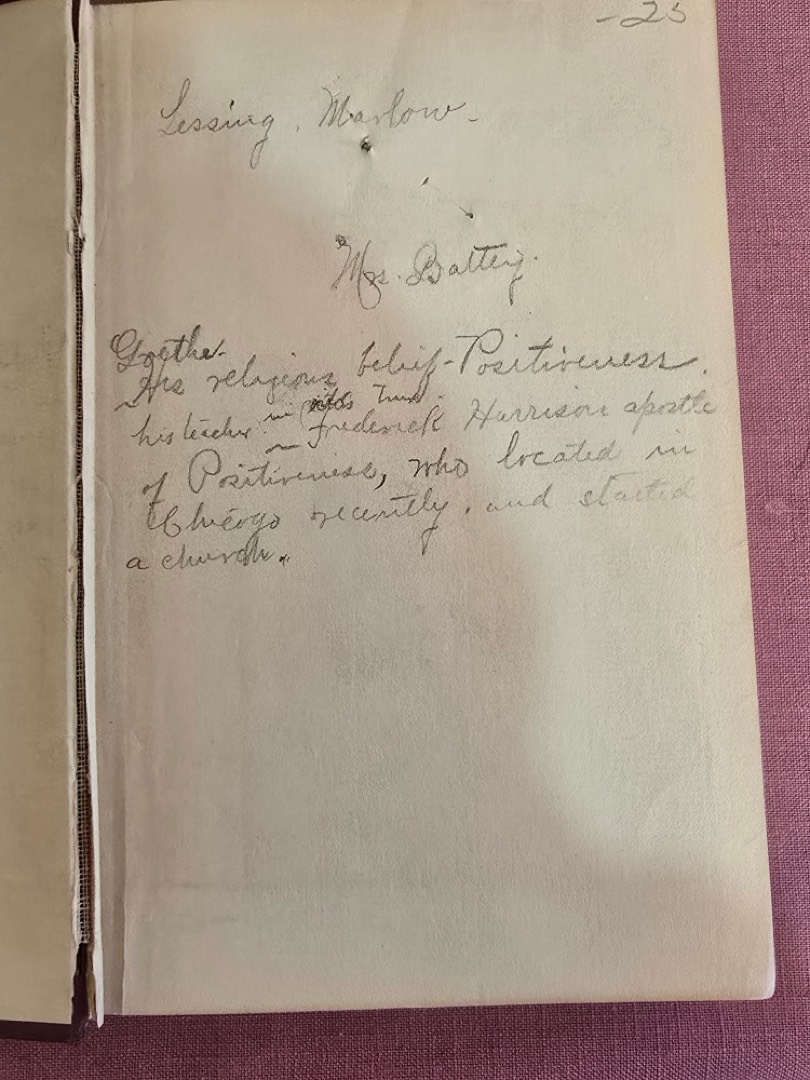 -25
Lessing. Marlow-
Mrs. Battey.
Goethe-
His religious belief-Positiveness.
his teacher in
Frederick Harrison apostle
of Positiveness, who located in
Chicago recently, and started
a church.